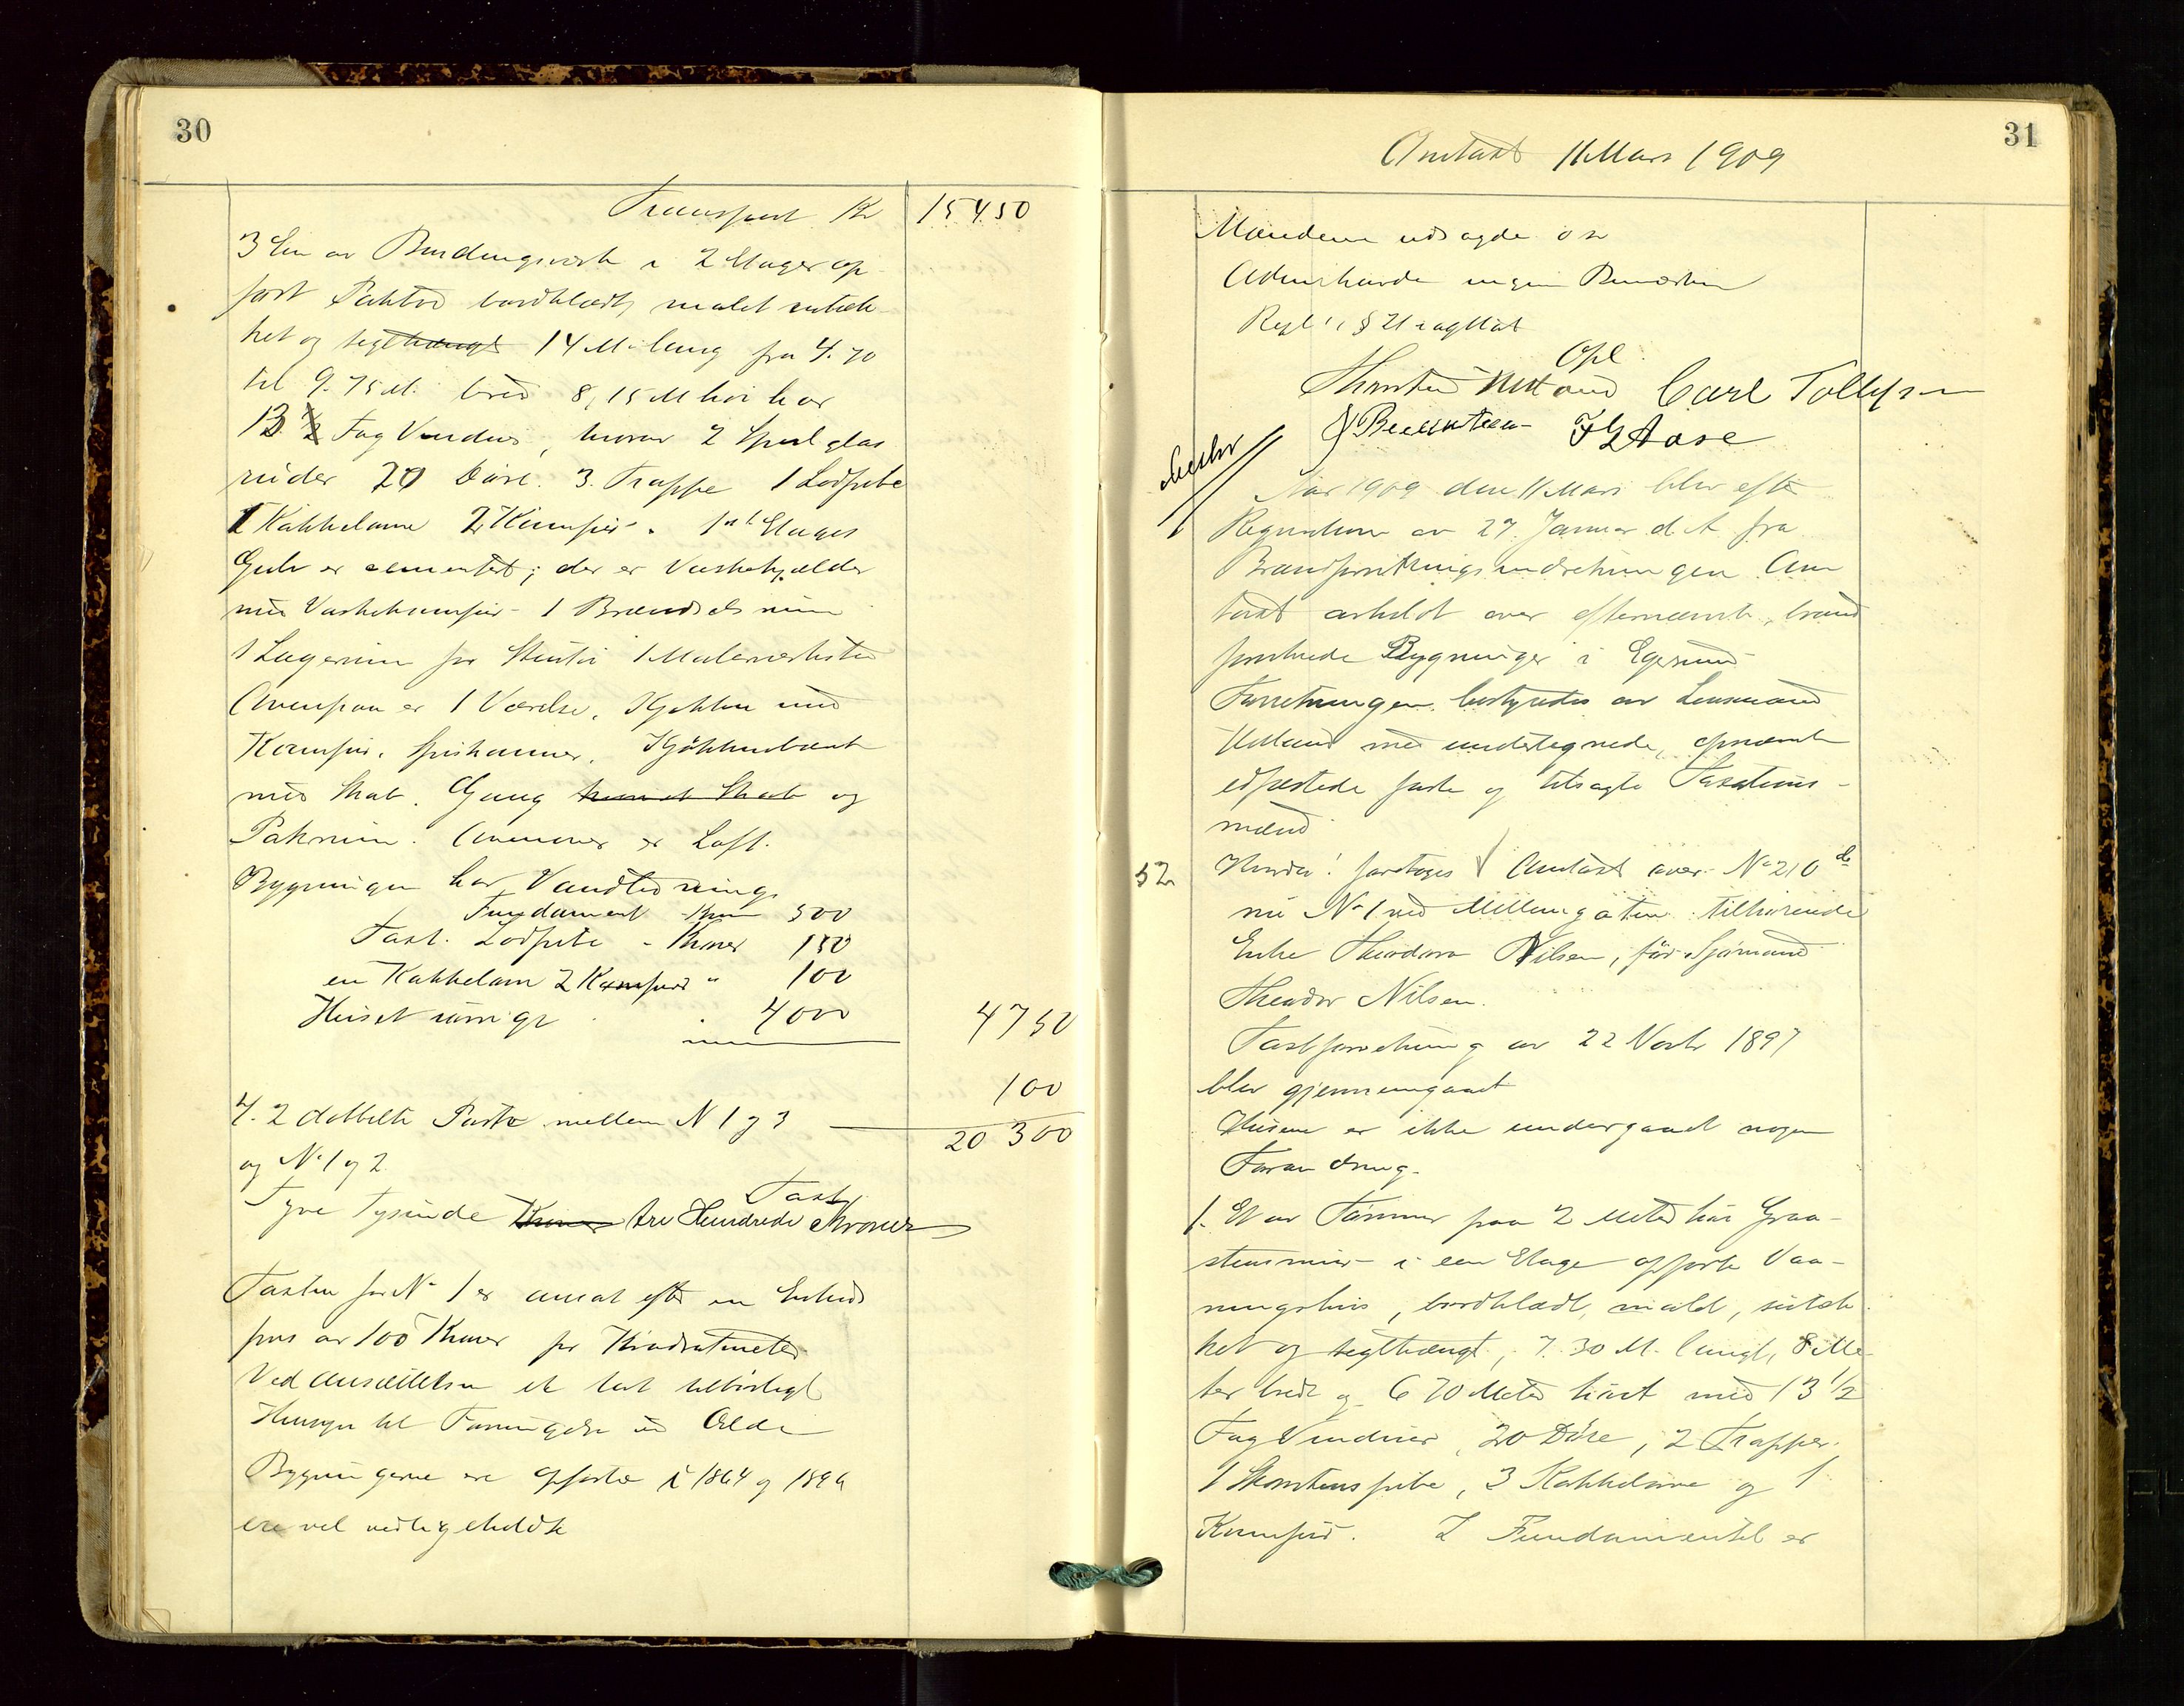 30
Transport Kr 15450
3 Een av Bindingsverk i 2 Etager op-
ført Pakbod bordklædt malet sutæk-
ket og teglhængt 14 M. lang fra 4.70
til 9.75 M. bred 8,15 M høi har
13 Fag Vinduer, hvorav 2 Speilglas
ruder 20 Døre. 3. Trappe 1 Lodpibe
1 Kakkelovne 2 Komfur. 1ste Etages
Gulv er cementert; der er Vaskekjælder
med Vaskekomfur - 1 Brændselsrum
1 Lagerrum for 1 Malerverksted
Ovenpaa er 1 Værelse, Kjøkken med
Komfur, Spiskammer, Kjøkkenbænk
med Skab. Gang og
Pakrum. Ovenover er Loft.
Bygningen har Vandledning
Fundament Kroner 500
Taxt. Lodpibe - Kroner 150
en Kakkelovn 2 Komfurer " 100
Huset øvrigt 4000 4750
100
4. 2 dobbelte Porte mellem N 1 og 3
20 300
og No 1 og 2
Taxt
Tyve Tusinde Kroner tre Hundrede Kroner
Taxten for No 1 er ansat efter en Enheds
pris av 100 Kroner pr Kvadratmeter
Ved Ansættelsen er tat tilbørligt
Hensyn til Forringelse ved Ælde
Bygningerne ere opførte i 1864 og 1896
ere vel vedligeholdte
31
Omtaxt 11 Mars 1909
Mændene udsagde
Administrende ingen Bemærkn
Regl's § 21 iagttat
Opl
Hustad Carl Tollefsen
Aase
Aar 1909 den 11 Mars blev efter
Requisition av 27 Januar d. A. fra
Brandforsikringsindretningen Om
taxt avholdt over efternævnte, brand
forsikrede Bygninger i Egersund
Forretningen bestyredes av Lensmand
med undertegnede, opnævnte
edfæstede faste og tilsagte Taxations-
mænd
52 Herunder! foretoges Omtaxt over No 210 de
nu No 1 ved Møllergaten tilhørende
Enke Theodora Nilsen, før Sjømand
Theodor Nilsen.
Taxtforretning av 22 Novbr 1897
blev gjennemgaaet
Husene er ikke undergaaet nogen
Forandring.
1. Et av Tømmer paa 2 Meter høi Graa-
stensmur i een Etage opført Vaa-
ningshus, bordklædt, malt, sutæk
ket og teglhængt, 7.30 M. langt, 8 Me
ter bredt og 6 70 Meter høit med 13 1/2
Fag Vinduer, 20 Døre, 2 Trapper.
1 Skorstenspibe, 3 Kakkelovne og 1
Komfur. I Fundamentet er